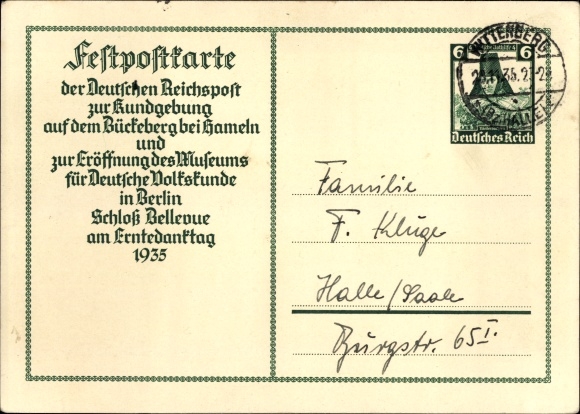 Festpostkarte
der Deutschen Reichspost
zur Kundgebung
auf dem Bückeberg bei Hameln
und
zur Eröffnung des Museums
für Deutsche Volkskunde
in Berlin
Schloß Bellevue
am Erntedanktag
1935
6 6
Deutsches Reich
WITTENBERG
Familie
F. Kluge
Halle/Saale
Burgstr. 65 I.